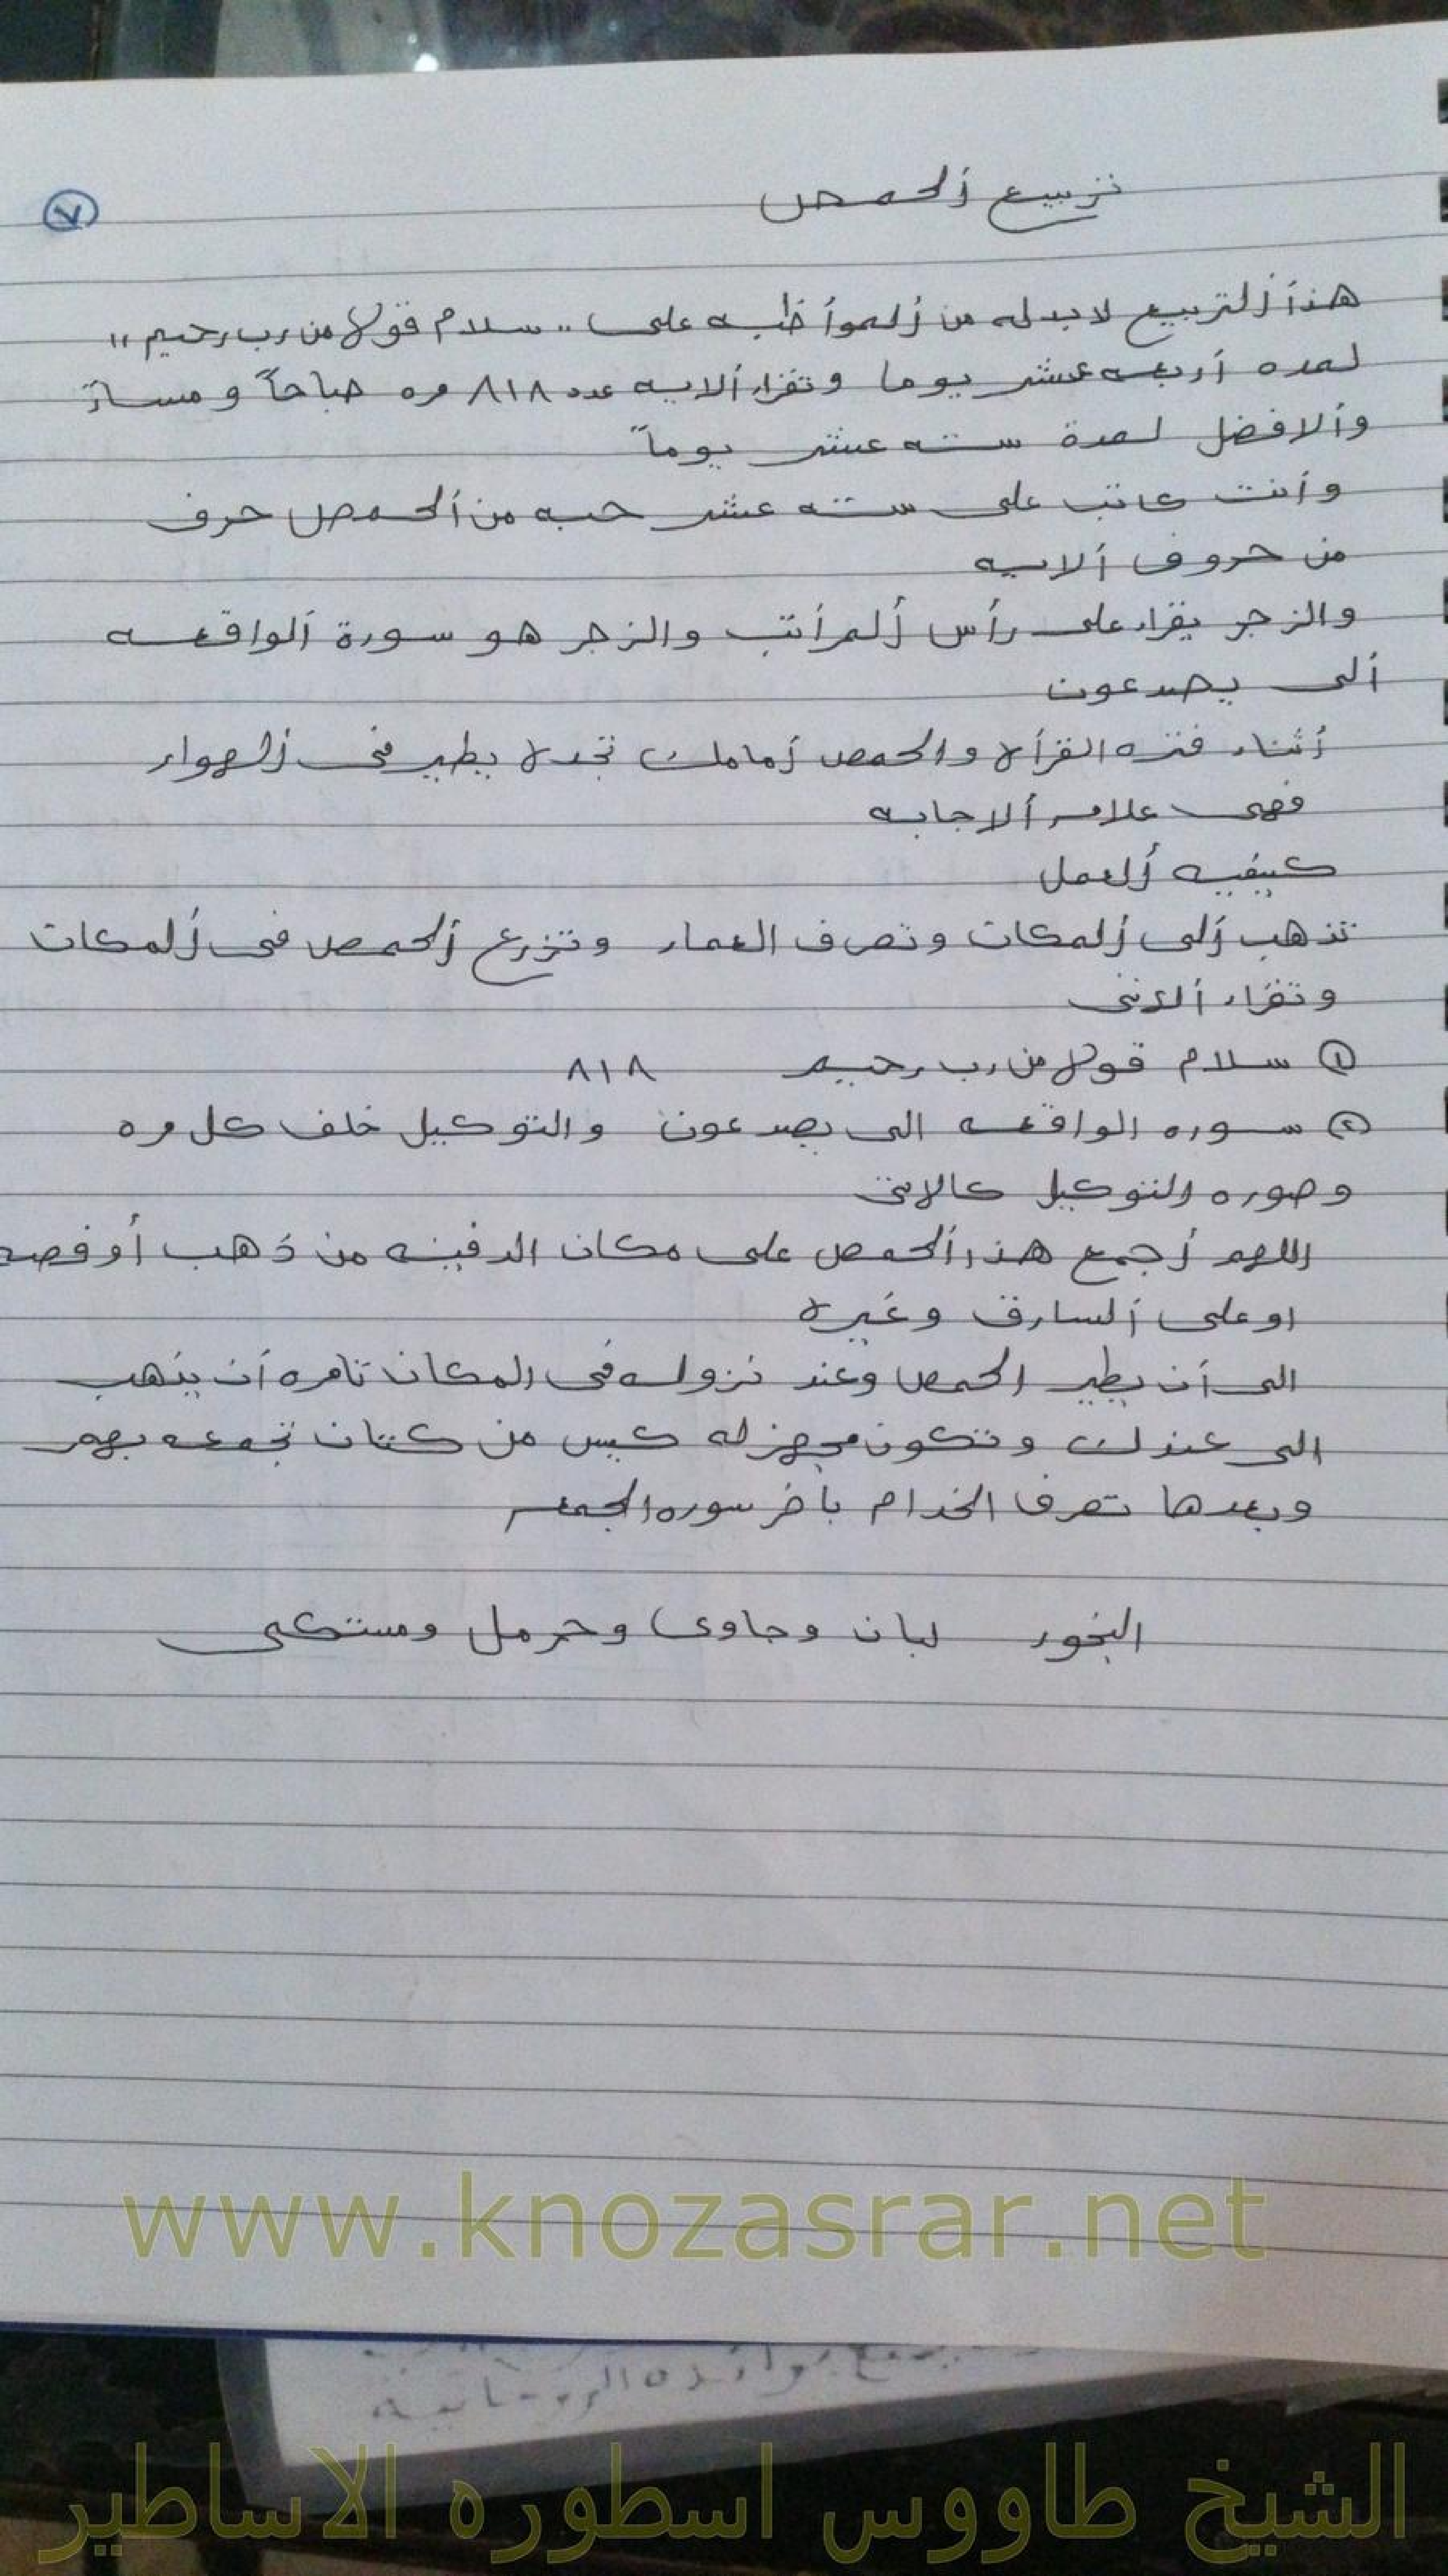 تربيع ألحمص
٧
هذأ ألتربيع لابد له من ألموأظبه على ،، سلام قولا من رب رحيم ،،
لمده أربعه عشر يوما وتقراء ألايه عدد ٨١٨ مره صباحاً ومساءً
وألافضل لمدة سته عشر يوماً
وأنت كاتب على سته عشر حبه من ألحمص حرف
من حروف ألايه
والزجر يقراء على رأس ألمرأتب والزجر هو سورة ألواقعه
ألى يصدعون
أثناء فتره القرأه والحمص أمامك تجده يطير فى ألهواء
فهى علامه ألاجابه
كيفيه ألعمل
تذهب ألى ألمكان وتصرف العمار وتزرع ألحمص فى ألمكان
وتقراء ألاتى
١ سلام قولا من رب رحيم ٨١٨
٢ سوره الواقعه الى يصدعون والتوكيل خلف كل مره
وصوره التوكيل كالاتى
اللهم أجمع هذا ألحمص على مكان الدفينه من ذهب أو فضه
او على ألسارق وغيره
الى أن يطير الحمص وعند نزوله فى المكان تامره أن يذهب
الى عندك وتكون مجهز له كيس من كتان تجمعه بهم
وبعدها تصرف الخدام بأخر سوره الجمعه
البخور لبان وجاوى وحرمل ومستكى
www.knozasrar.net
الشيخ طاووس اسطوره الاساطير